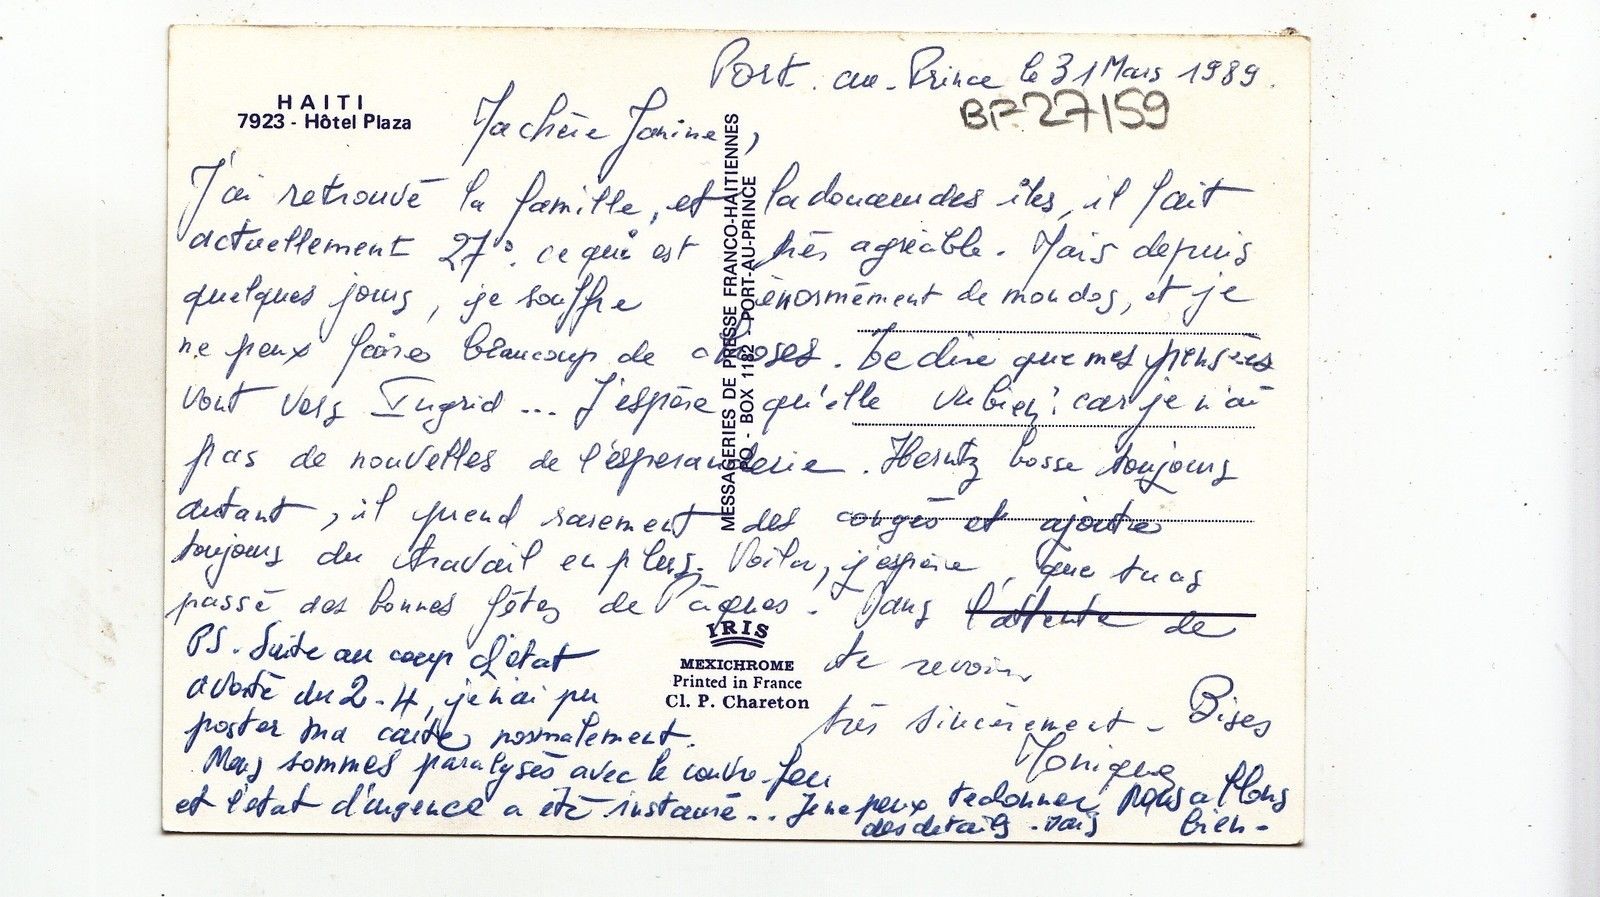 Port-au-Prince le 31 Mars 1989.
BF 27/159
HAITI
7923 - Hôtel Plaza
Ma chère Janine,
J'ai retrouvé la famille, et la douceur des îles, il fait
actuellement 27°. ce qui est très agréable. Mais depuis
quelques jours, je souffre énormément de mon dos, et je
ne peux faire beaucoup de choses. Te dire que mes pensées
vont vers Ingrid... J'espère qu'elle va bien: car je n'ai
pas de nouvelles de l'esperanderie. Herntz bosse toujours
autant, il prend rarement des congés et ajoute
toujours du travail en plus. Voilà, j'espère, que tu as
passé des bonnes fêtes de Pâques. Dans l'attente de
te revoir,
très sincèrement - Bises
Monique
PS. Suite au coup d'état
avorté du 2-4, je n'ai pu
poster ma carte normalement.
Nous sommes paralysés avec le couvre-feu
et l'état d'urgence a été instauré... Je ne peux te donner
des détails. Mais nous allons
bien -
MESSAGERIES DE PRESSE FRANCO-HAITIENNES
BOX 1182 - PORT-AU-PRINCE
IRIS
MEXICHROME
Printed in France
Cl. P. Chareton